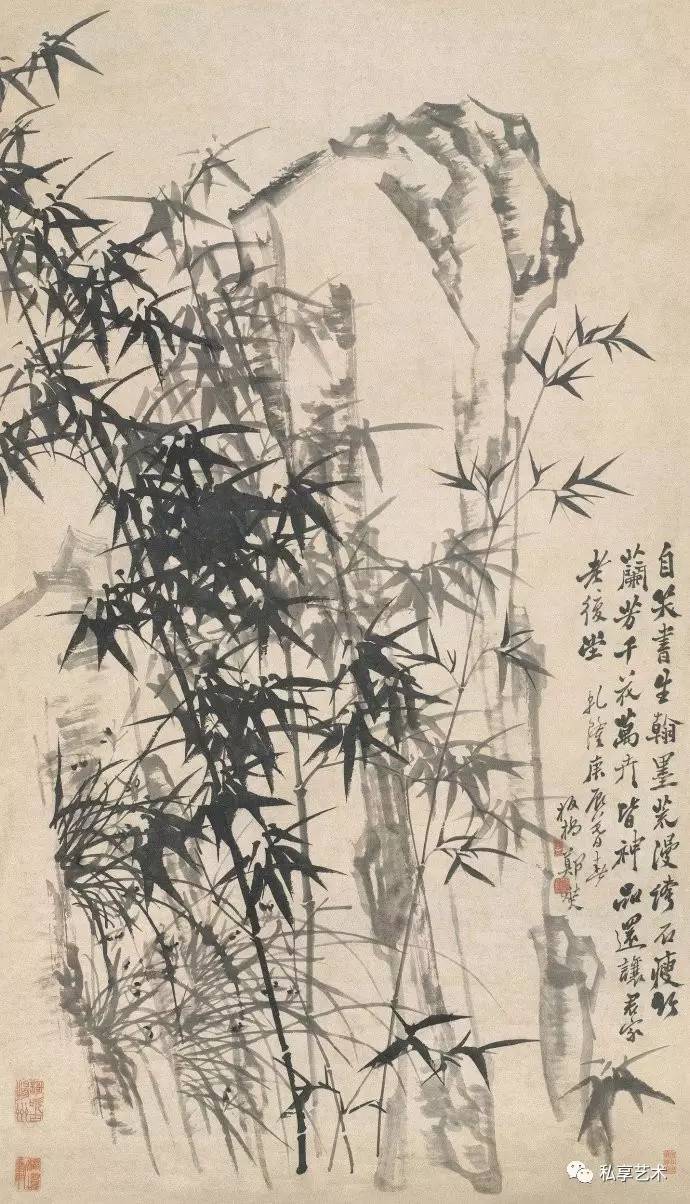 自笑書生翰墨荒漫誇石瘦竹
蘭芳千花萬卉皆神品還讓君家
老復堂 乾隆庚辰春
板橋鄭燮
私享艺术